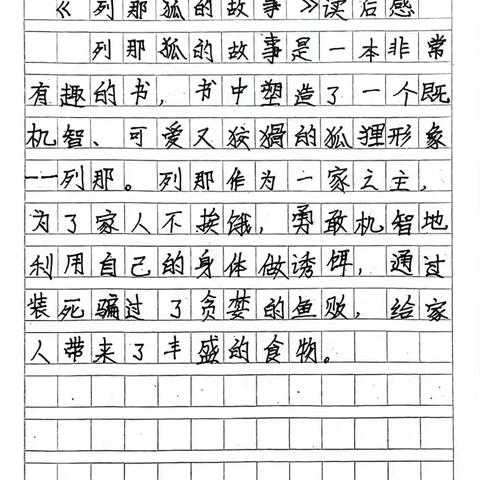 《列那狐的故事》读后感
列那狐的故事是一本非常
有趣的书，书中塑造了一个既
机智、可爱又狡猾的狐狸形象
——列那。列那作为一家之主，
为了家人不挨饿，勇敢机智地
利用自己的身体做诱饵，通过
装死骗过了贪婪的鱼贩，给家
人带来了丰盛的食物。